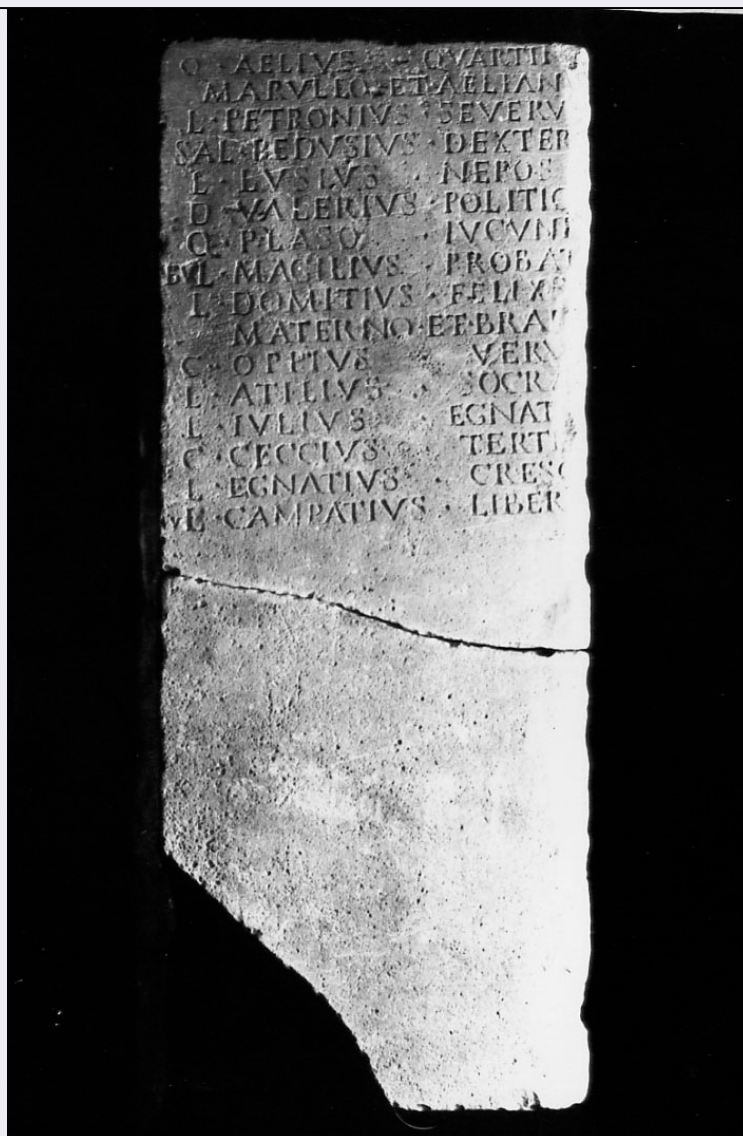 Q · AELIVS · QVARTIN
MARVLLO · ET · AELIAN
L · PETRONIVS · SEVERV
SAL · BEDVSIVS · DEXTER
L · LVSIVS · NEPOS
D · VALERIVS · POLITIC
Q · PLASO IVCVN
L · MAGILIVS · PROBAT
L · DOMITIVS · FELIX
MATERNO · ET · BRA
C · OPPIVS VERV
L · ATILIVS · SOCRA
L · IVLIVS · EGNAT
C · CECCIVS · TERTI
L · EGNATIVS · CRESC
L · CAMPATIVS · LIBER